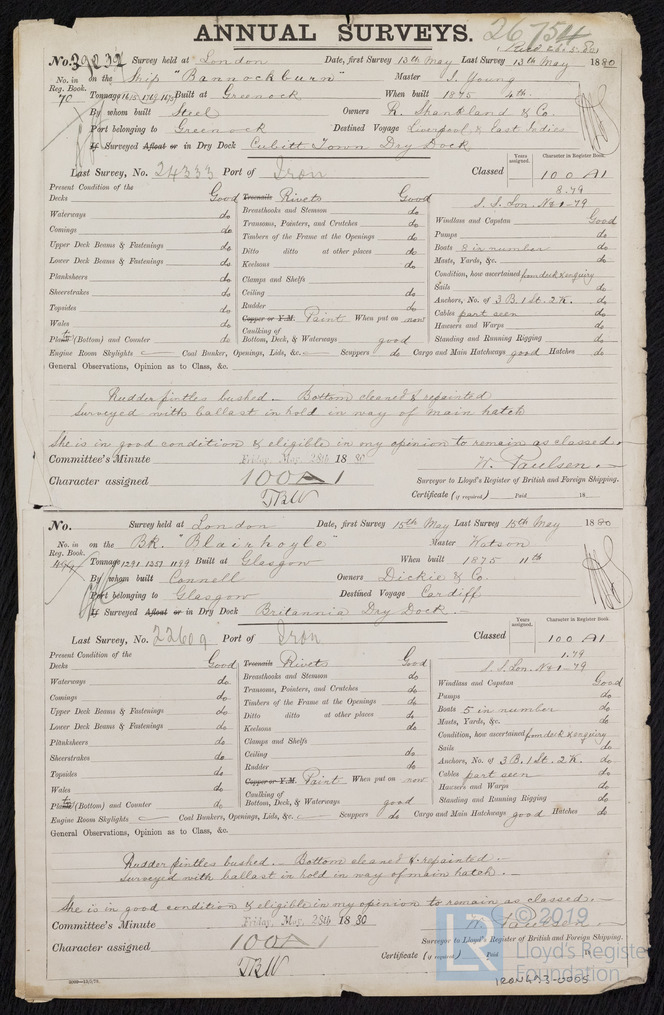 ANNUAL SURVEYS. 26754
No. 39232 Survey held at London Date, first Survey 13th May Last Survey 13th May 1880
No. in Reg. Book. 70 on the Ship "Bannockburn" Master J. Young
Tonnage Built at Greenock When built 1875 4th.
By whom built Steel Owners R. Shankland & Co.
Port belonging to Greenock Destined Voyage Liverpool & East Indies
If Surveyed Afloat or in Dry Dock Cubitt Town Dry Dock
Last Survey, No. 24333 Port of Iron Classed Years assigned. Character in Register Book. 100 A1
8.79
S.S. Lon. No 1-79
Present Condition of the
Decks Good Treenails Rivets Good Windlass and Capstan Good
Waterways do Breasthooks and Stemson do Pumps do
Comings do Transoms, Pointers, and Crutches do Boats 8 in number do
Upper Deck Beams & Fastenings do Timbers of the Frame at the Openings do Masts, Yards, &c. do
Lower Deck Beams & Fastenings do Ditto ditto at other places do Condition, how ascertained from deck & enquiry
Planksheers do Keelsons do Sails do
Sheerstrakes do Clamps and Shelfs Anchors, No. of 3 B. 1 St. 2 K. do
Topsides do Ceiling do Cables part seen do
Wales do Rudder do Hawsers and Warps do
Plating (Bottom) and Counter do Copper or Y.M. Paint When put on now Standing and Running Rigging do
Caulking of Bottom, Deck, & Waterways good
Engine Room Skylights Coal Bunker, Openings, Lids, &c. Scuppers do Cargo and Main Hatchways good Hatches do
General Observations, Opinion as to Class, &c.
Rudder pintles bushed. Bottom cleaned & repainted
Surveyed with ballast in hold in way of main hatch
She is in good condition & eligible in my opinion to remain as classed.
Committee's Minute Friday, May 28th 1880 W. Paulsen.
Character assigned 100 A 1 Surveyor to Lloyd's Register of British and Foreign Shipping.
TBW Certificate (if required) Paid 18
No. Survey held at London Date, first Survey 15th May Last Survey 15th May 1880
No. in Reg. Book. on the Bk. "Blairhoyle" Master Watson
Tonnage 1291 1257 1199 Built at Glasgow When built 1875 11th
By whom built Connell Owners Dickie & Co.
Port belonging to Glasgow Destined Voyage Cardiff
If Surveyed Afloat or in Dry Dock Britannia Dry Dock.
Last Survey, No. 22609 Port of Iron Classed Years assigned. Character in Register Book. 100 A1
1.79
S.S. Lon. No 1-79
Present Condition of the
Decks Good Treenails Rivets Good Windlass and Capstan Good
Waterways do Breasthooks and Stemson do Pumps do
Comings do Transoms, Pointers, and Crutches do Boats 5 in number do
Upper Deck Beams & Fastenings do Timbers of the Frame at the Openings do Masts, Yards, &c. do
Lower Deck Beams & Fastenings do Ditto ditto at other places do Condition, how ascertained from deck & enquiry
Planksheers do Keelsons do Sails do
Sheerstrakes do Clamps and Shelfs Anchors, No. of 3 B. 1 St. 2 K. do
Topsides do Ceiling do Cables part seen do
Wales do Rudder do Hawsers and Warps do
Plating (Bottom) and Counter do Copper or Y.M. Paint When put on now Standing and Running Rigging do
Caulking of Bottom, Deck, & Waterways good
Engine Room Skylights Coal Bunkers, Openings, Lids, &c. Scuppers do Cargo and Main Hatchways good Hatches do
General Observations, Opinion as to Class, &c.
Rudder pintles bushed. Bottom cleaned & repainted.
Surveyed with ballast in hold in way of main hatch.
She is in good condition & eligible in my opinion to remain as classed.
Committee's Minute Friday, May 28th 1880 W. Paulsen
Character assigned 100 A 1 Surveyor to Lloyd's Register of British and Foreign Shipping.
TBW Certificate (if required) Paid 18
LR © 2019
Lloyd's Register
Foundation
IRON493-0005